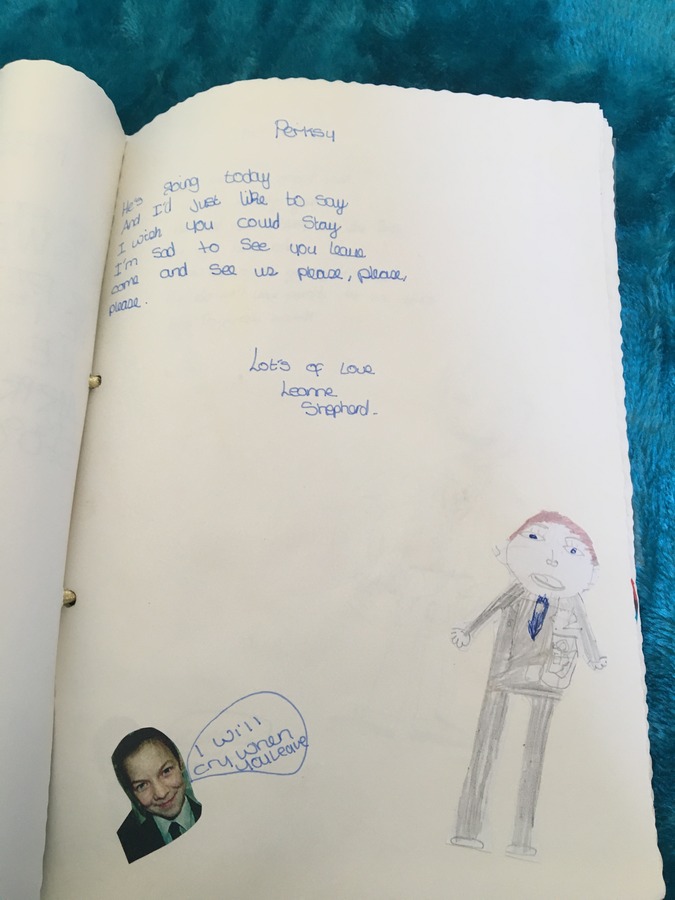 Perksy
He's going today
And I'd just like to say
I wish you could stay
I'm sad to see you leave
come and see us please, please,
please.
Lot's of love
Leanne
Shepherd.
I will
cry when
you leave